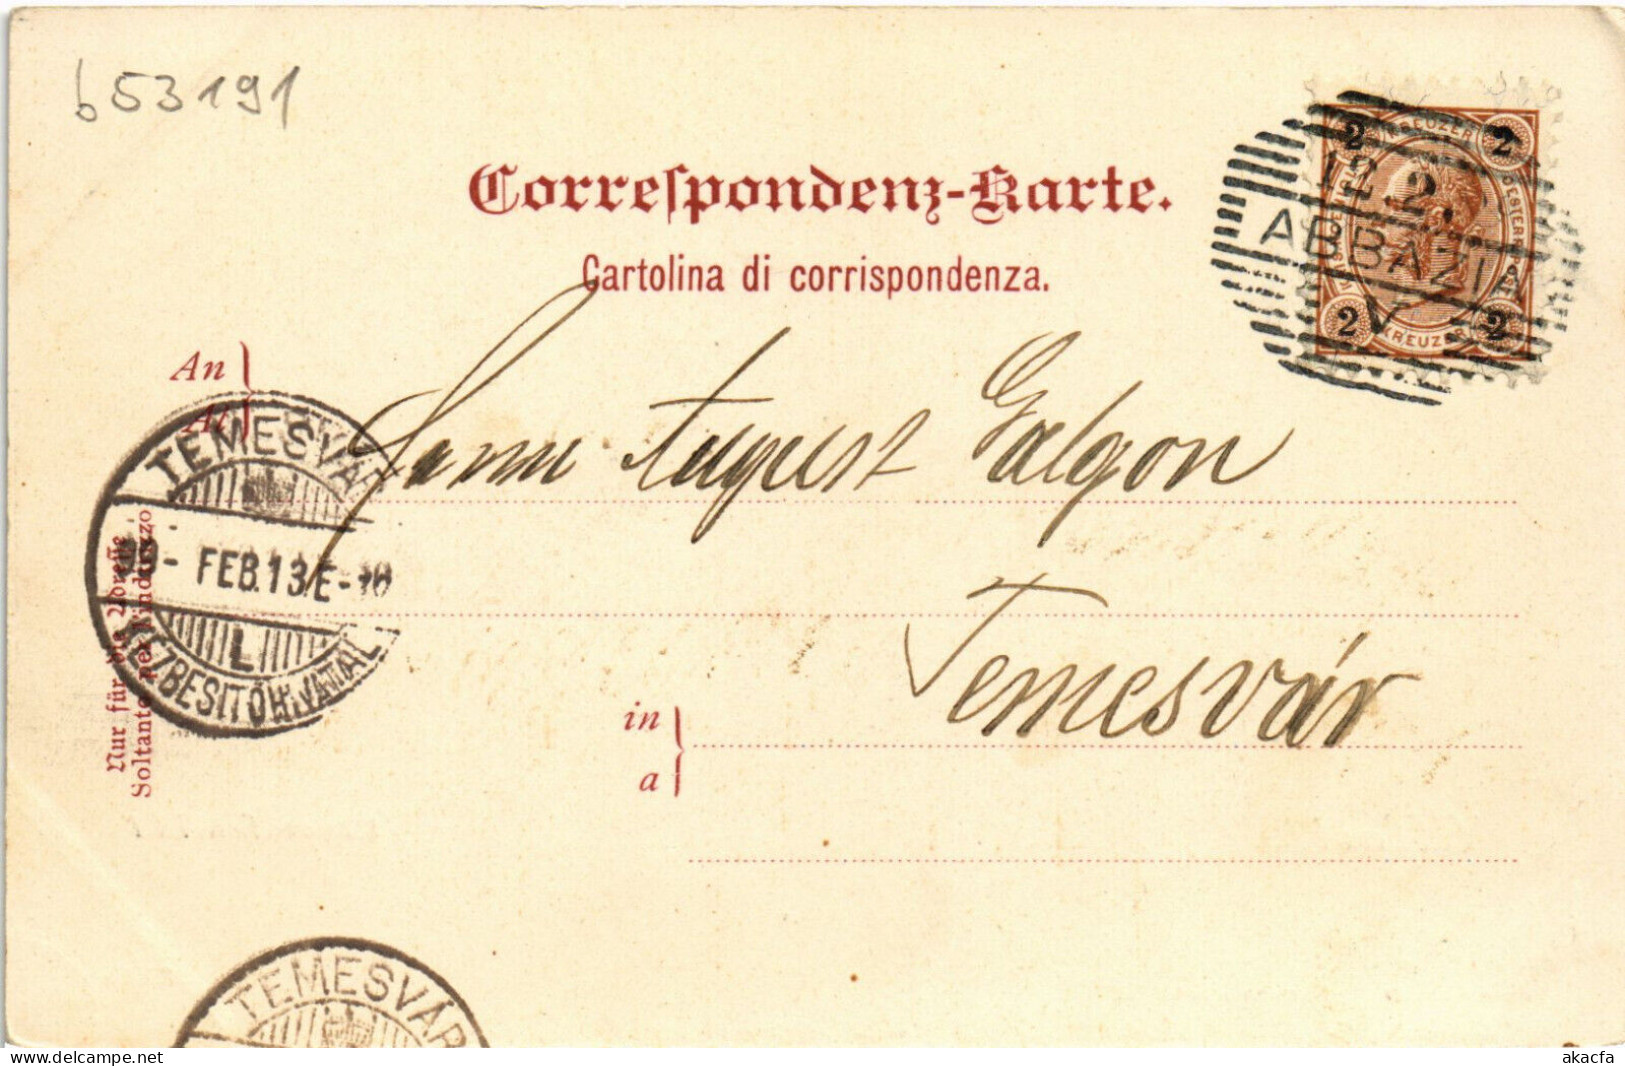 b53191
Correspondenz-Karte.
Cartolina di corrispondenza.
2 KREUZER 2
12 2
ABBAZIA
2 KREUZER 2
An
Al
TEMESVÁR
- FEB.13.E-
L
KÉZBESITÖHIVATAL
August Galgon
Temesvár
in
a
Nur für die Adresse
Soltanto per l'indirizzo
TEMESVÁR
delcampe.net
akacfa